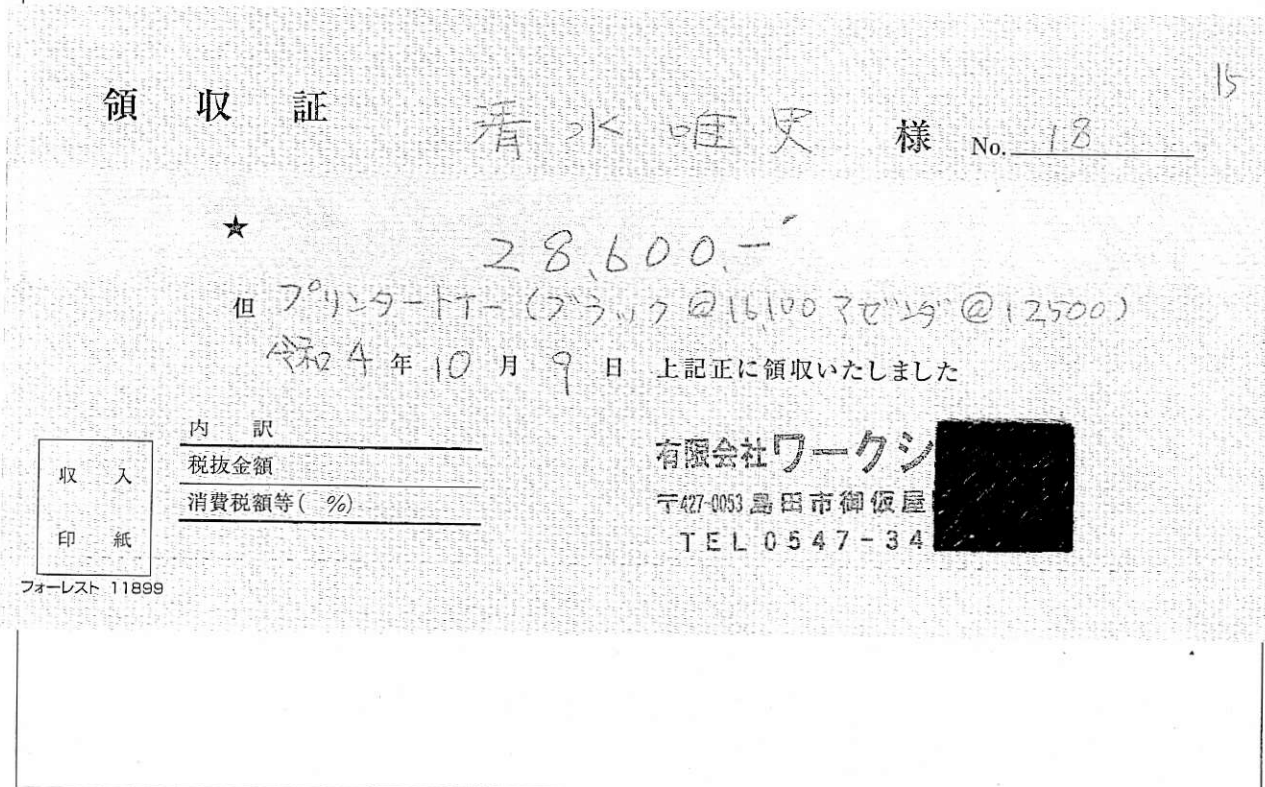 15
領 収 証 清水唯史 様 No. 18
★ 28,600.-
但 プリンタートナー(ブラック@16,100 マゼンダ@12500)
令和4年10月9日 上記正に領収いたしました
内 訳
税抜金額
消費税額等( %)
収 入
印 紙
フォーレスト 11899
有限会社ワークシ
〒427-0053 島田市御仮屋
TEL 0547-34